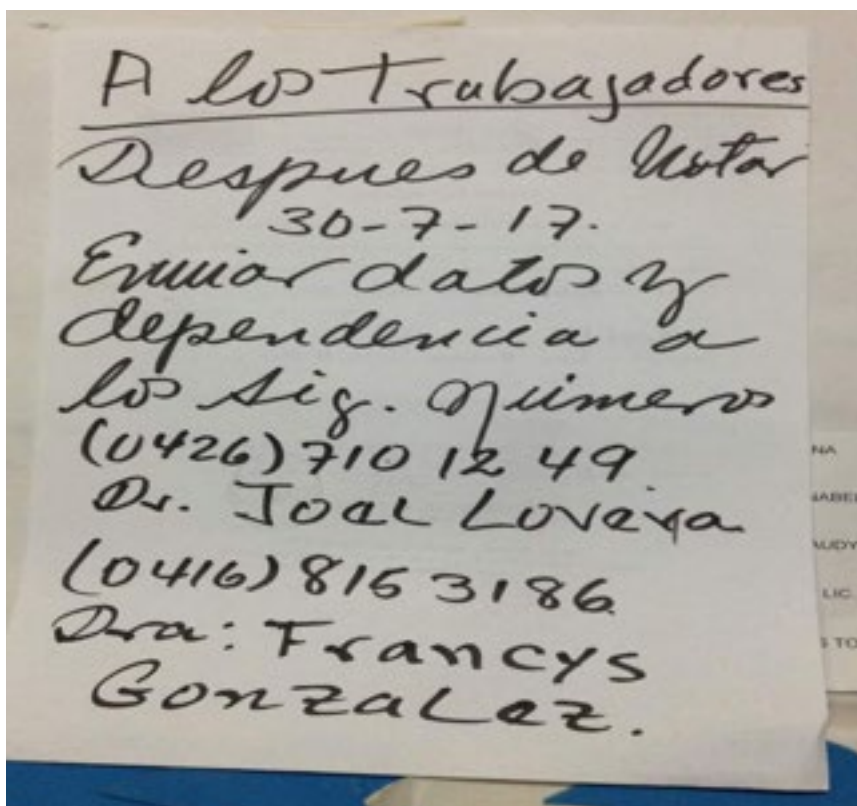 A los Trabajadores
Despues de Votar
30-7-17.
Enviar datos y
dependencia a
los sig. números
(0426) 710 12 49
Dr. Joel Lovera
(0416) 815 3186
Dra: Francys
Gonzalez.
NA
LIC.